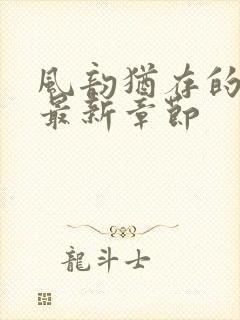 風韵猶存的
最新章節
龍斗士